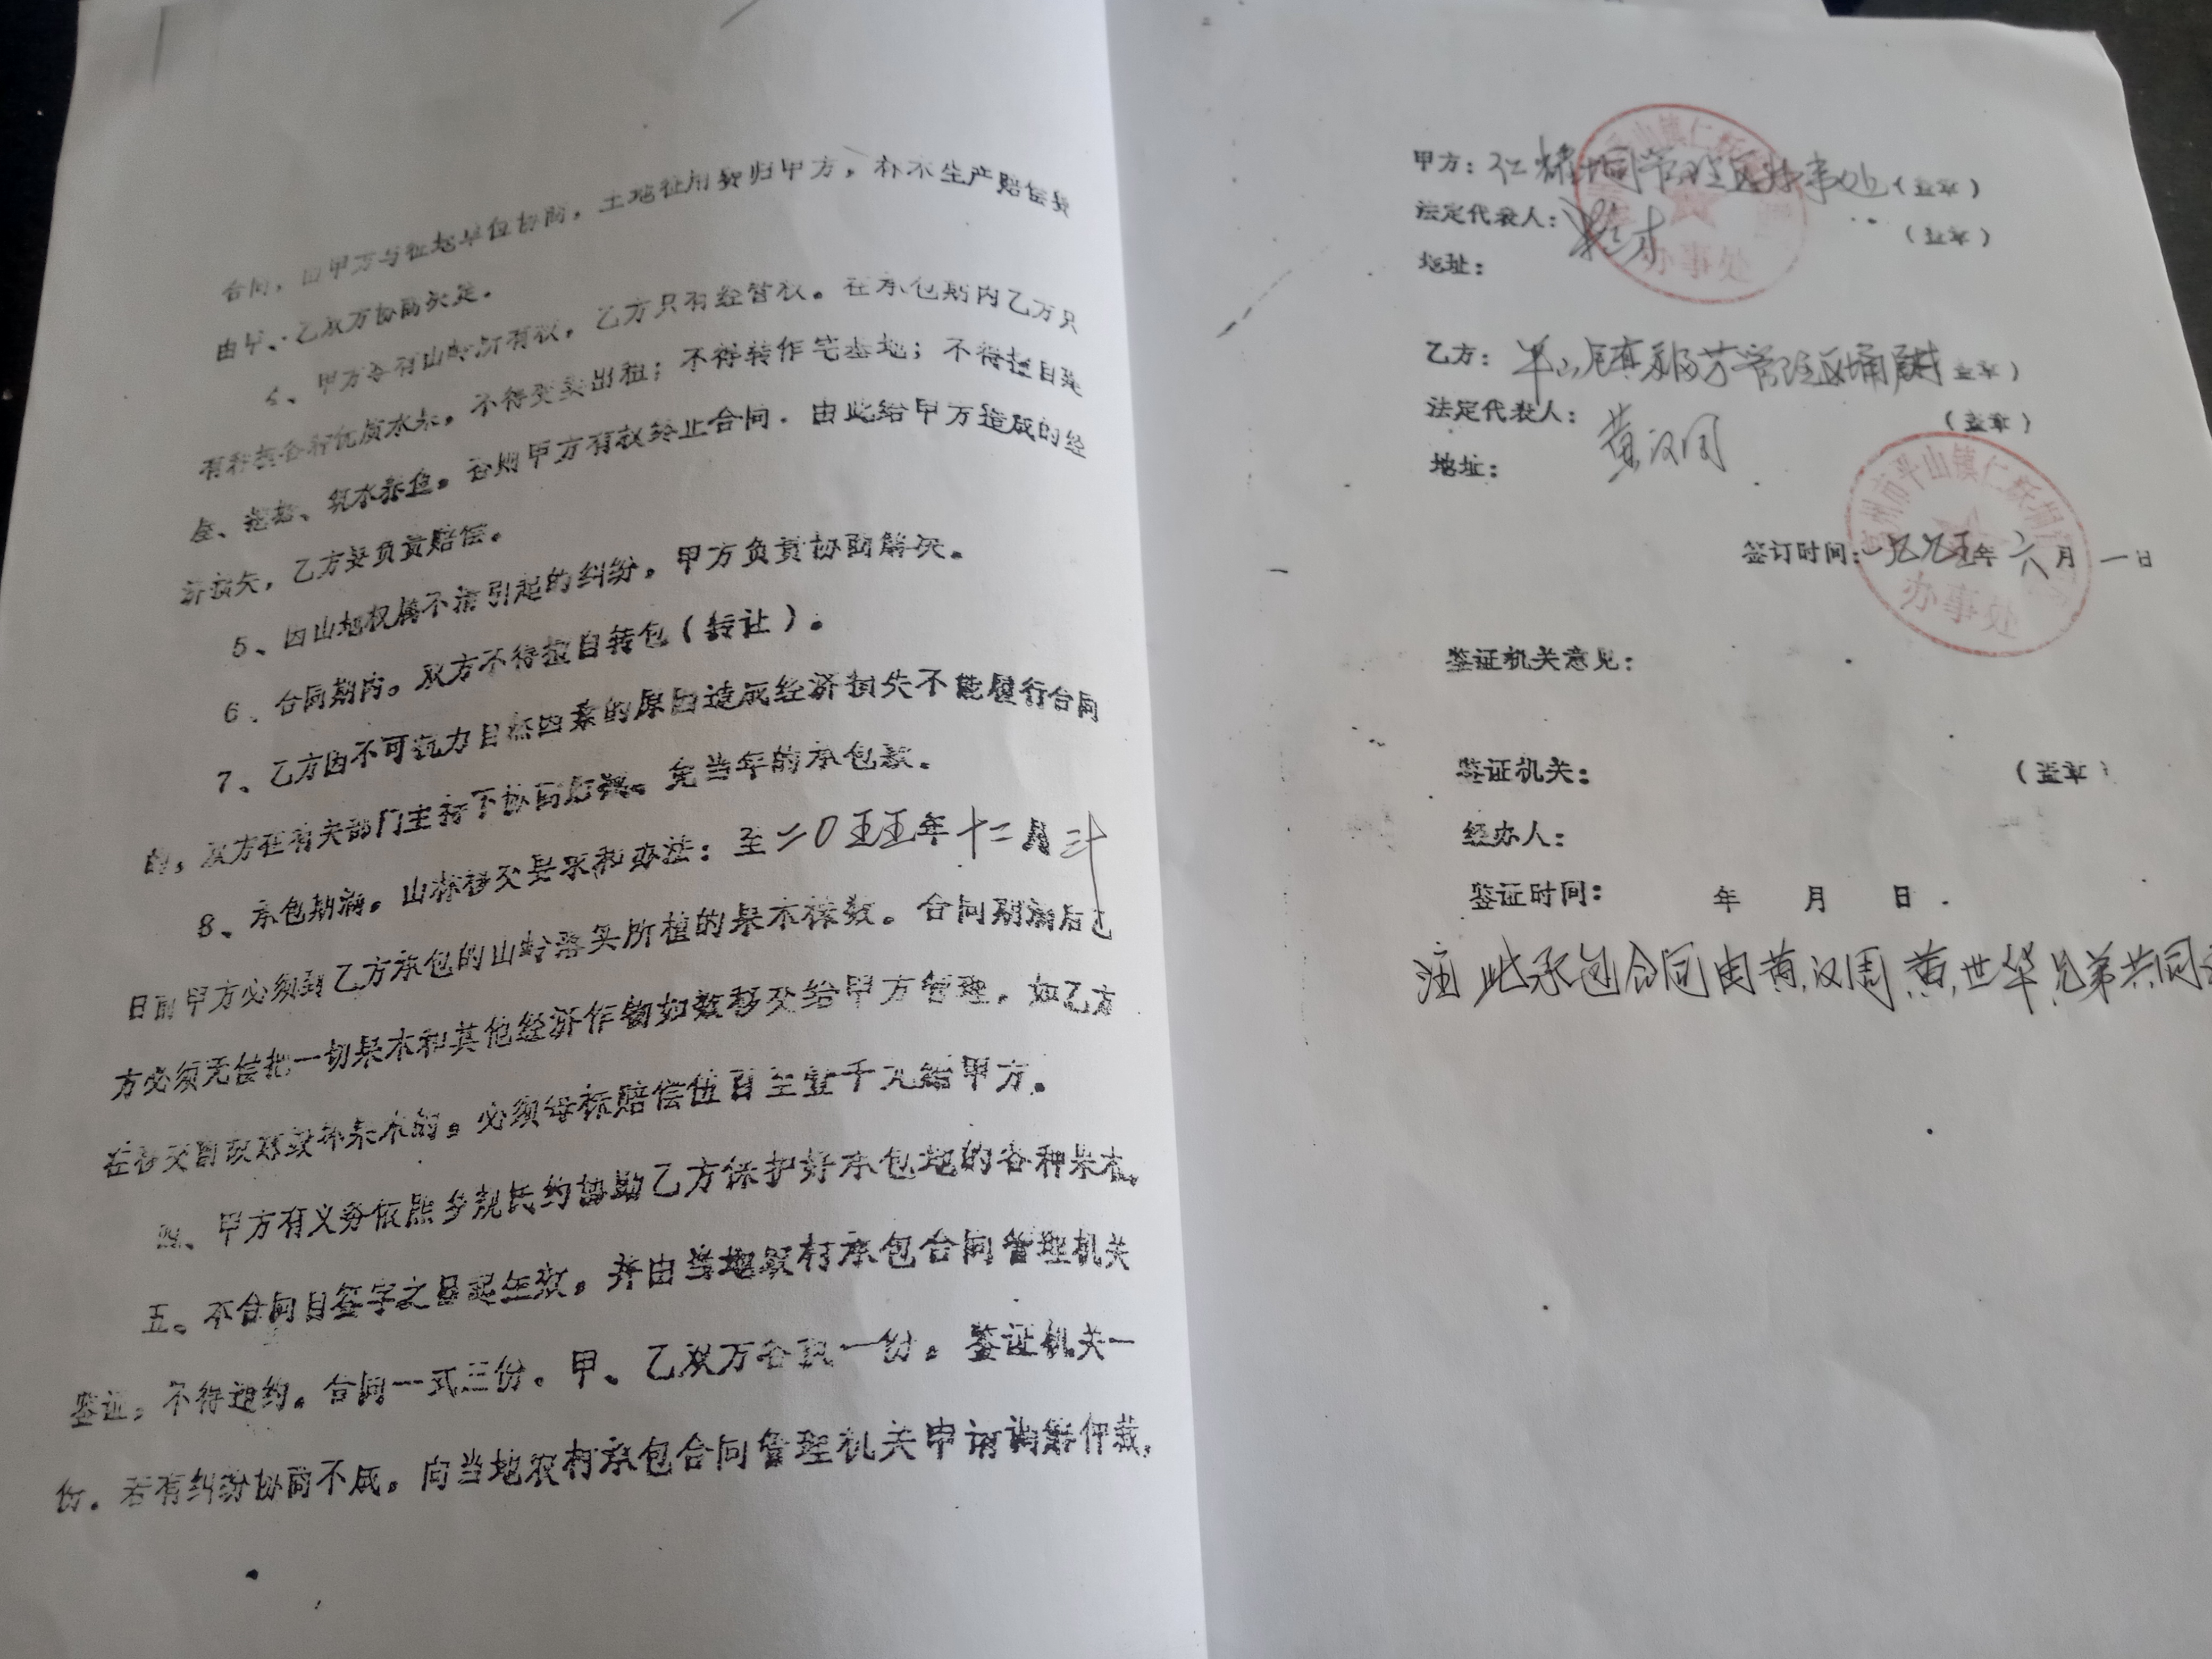 合同，由甲方与征地单位协商，土地征用费归甲方，林木生产赔偿费
由甲、乙双方协商决定。
4、甲方享有山岭所有权，乙方只有经营权。在承包期内乙方只
有种植各种优质水果，不得变卖出租；不得转作宅基地；不得擅自建
屋、挖塘、筑水养鱼。否则甲方有权终止合同．由此给甲方造成的经
济损失，乙方要负责赔偿。
5、因山地权属不清引起的纠纷，甲方负责协商解决。
6、合同期内。双方不得擅自转包（转让）。
7、乙方因不可抗力自然因素的原因造成经济损失不能履行合同
的，双方在有关部门主持下协商后，免当年的承包款．
8、承包期满。山林移交要求和办法：至二0五五年十二月卅
日前甲方必须到乙方承包的山岭落实所植的果木株数。合同期满后乙
方必须无偿把一切果木和其他经济作物如数移交给甲方管理，如乙方
在移交前砍怼毁坏果木的，必须每株赔偿伍百至壹千元给甲方．
四、甲方有义务依照乡规民约协助乙方保护好承包地的各种果木，
五。本合同自签字之日起生效，并由当地农村承包合同管理机关
鉴证，不得违约。合同一式三份．甲、乙双方各执一份，鉴证机关一
份．若有纠纷协商不成，向当地农村承包合同管理机关申请调解仲裁，
甲方：仁耀垌管理区办事处（盖章）
法定代表人： （盖章）
地址：
办事处
乙方： 管理区 盖章）
法定代表人：黄汉周 （盖章）
地址：
签订时间：一九九五年六月一日
州市斗山镇仁跃垌
办事处
鉴证机关意见：
鉴证机关： （盖章）
经办人：
鉴证时间： 年 月 日．
注 此承包合同由黄汉周 黄世华兄弟共同